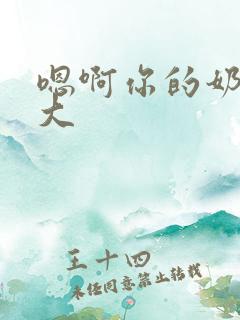 嗯啊你的奶
大
王十四
未经同意禁止转载